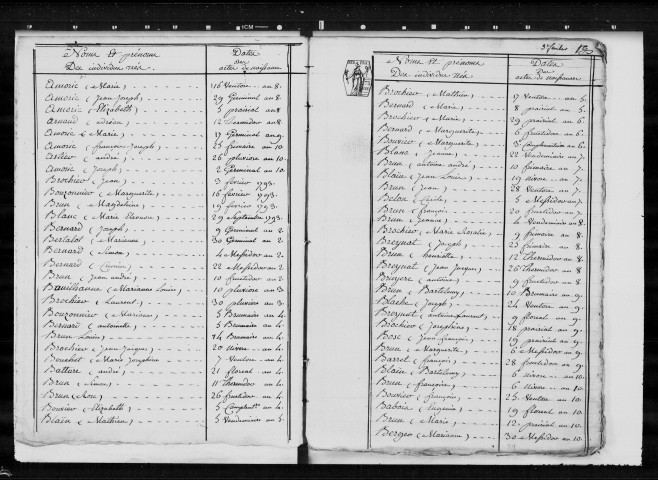 Noms et prénoms
Des individus nés
Dates
des
actes de naissance
Amoric (Marie) 16 Ventose an 8.
Amoric (Jean Joseph) 29 Germinal an 8.
Amoric (Elizabeth) 5 prairial an 8
Arnaud (adréan) 12 Thermidor an 8
Amoric (Marie) 17 Germinal an 9.
Amoric (françois Joseph) 25 frimaire an 10
Artier (andré) 26 pluviose an 10.
Amoric (Joseph) 2 Germinal an 10
Brochier (Jean) 3 fevrier 1793.
Bouzonnier (Marguerite) 16 fevrier 1793
Brun (Magdeleine) 19 fevrier 1793
Blanc (Marie Eleonore) 29 Septembre 1793.
Bernard (Joseph) 9 Germinal an 2
Bertalot (Marianne) 30 Germinal an 2.
Bernard (Simon) 4 Messidor an 2
Bernard 22 Messidor an 2
Brun (Jean andré) 10 fructidor an 2
Bouilhanne (Marianne Louise) 10 pluviose an 3
Brochier (Laurent) 30 pluviose an 3
Bouzonnier (Marianne) 5 Brumaire an 4.
Bernard (antoinette) 5 Brumaire an 4
Brun (Louis) 14 Brumaire an 4
Brochier (Jean Jacques) 20 nivose an 4.
Bouchet (Marie Josephine) 7 Ventose an 4.
Battare (andré) 21 floreal an 4
Brun (Simon) 11 Thermidor an 4.
Brun (Rose) 26 fructidor an 4.
Bouvier (Elizabeth) 5 Complémt. an 4.
Blain (Mathieu) 5 Vendemiaire an 5
Noms et prénoms
Des individus nés
Dates
Des
actes de naissance
Brochier (Mathieu) 17 Ventose an 5.
Bernard (Marie) 8 prairial an 5.
Brochier (Marie) 29 prairial an 6
Bernard (Marguerite) 6 fructidor an 6
Bouvier (Marguerite) 3 Complementaire an 6.
Blanc (Jeanne) 22 Vendemiaire an 7
Brun (antoine andré) 10 frimaire an 7.
Blain (Jean Louis) 19 nivose an 7.
Brun (Jean) 28 Ventose an 7
Belox (Cécile) 5 Messidor an 7
Brun (françois) 20 fructidor an 7.
Brun (Jeanne) 4 Vendemiaire an 8.
Brochier (Marie Rosalie) 9 frimaire an 8.
Breynat (Joseph) 23 frimaire an 8
Brun (henriette) 12 Thermidor an 8
Breynat (Jean Jacques) 26 Thermidor an 8
Bruyere (antoine) 6 fructidor an 8
Brun (Bartelemy) 10 Brumaire an 9.
Blache (Joseph) 24 Ventose an 9.
Breynat (antoine Laurent) 9 floreal an 9.
Brochier (Josephine) 18 prairial an 9.
Bosc (Jean françois) 19 prairial an 9
Brun (Marguerite) 6 Messidor an 9
Barret (françois) 28 fructidor an 9
Blain (Bartelemy) 6 nivose an 10.
Brun (françoise) 6 nivose an 10.
Bouvier (françois) 25 Ventose an 10
Baboin (Eugenie) 19 floreal an 10
Brun (Marie) 12 prairial an 10
Berger (Marianne) 30 Messidor an 10.